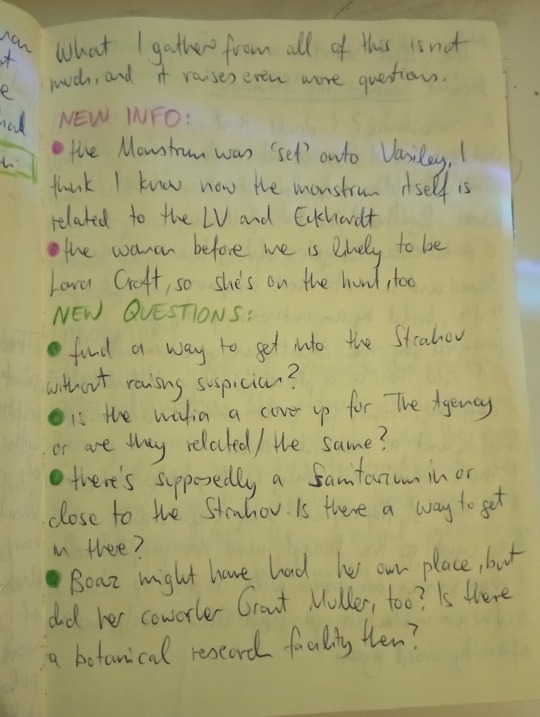 What I gather from all of this is not
much, and it raises even more questions.
NEW INFO:
• the Monstrum was 'set' onto Vasiley. I
think I know now the monstrum itself is
related to the LV and Eckhardt
• the woman before me is likely to be
Lara Croft, so she's on the hunt, too
NEW QUESTIONS:
• find a way to get into the Strahov
without raising suspicion?
• is the mafia a cover up for The Agency
or are they related/the same?
• there's supposedly a Sanitarium in or
close to the Strahov. Is there a way to get
in there?
• Boaz might have had her own place, but
did her coworker Grant Muller, too? Is there
a botanical research facility then?